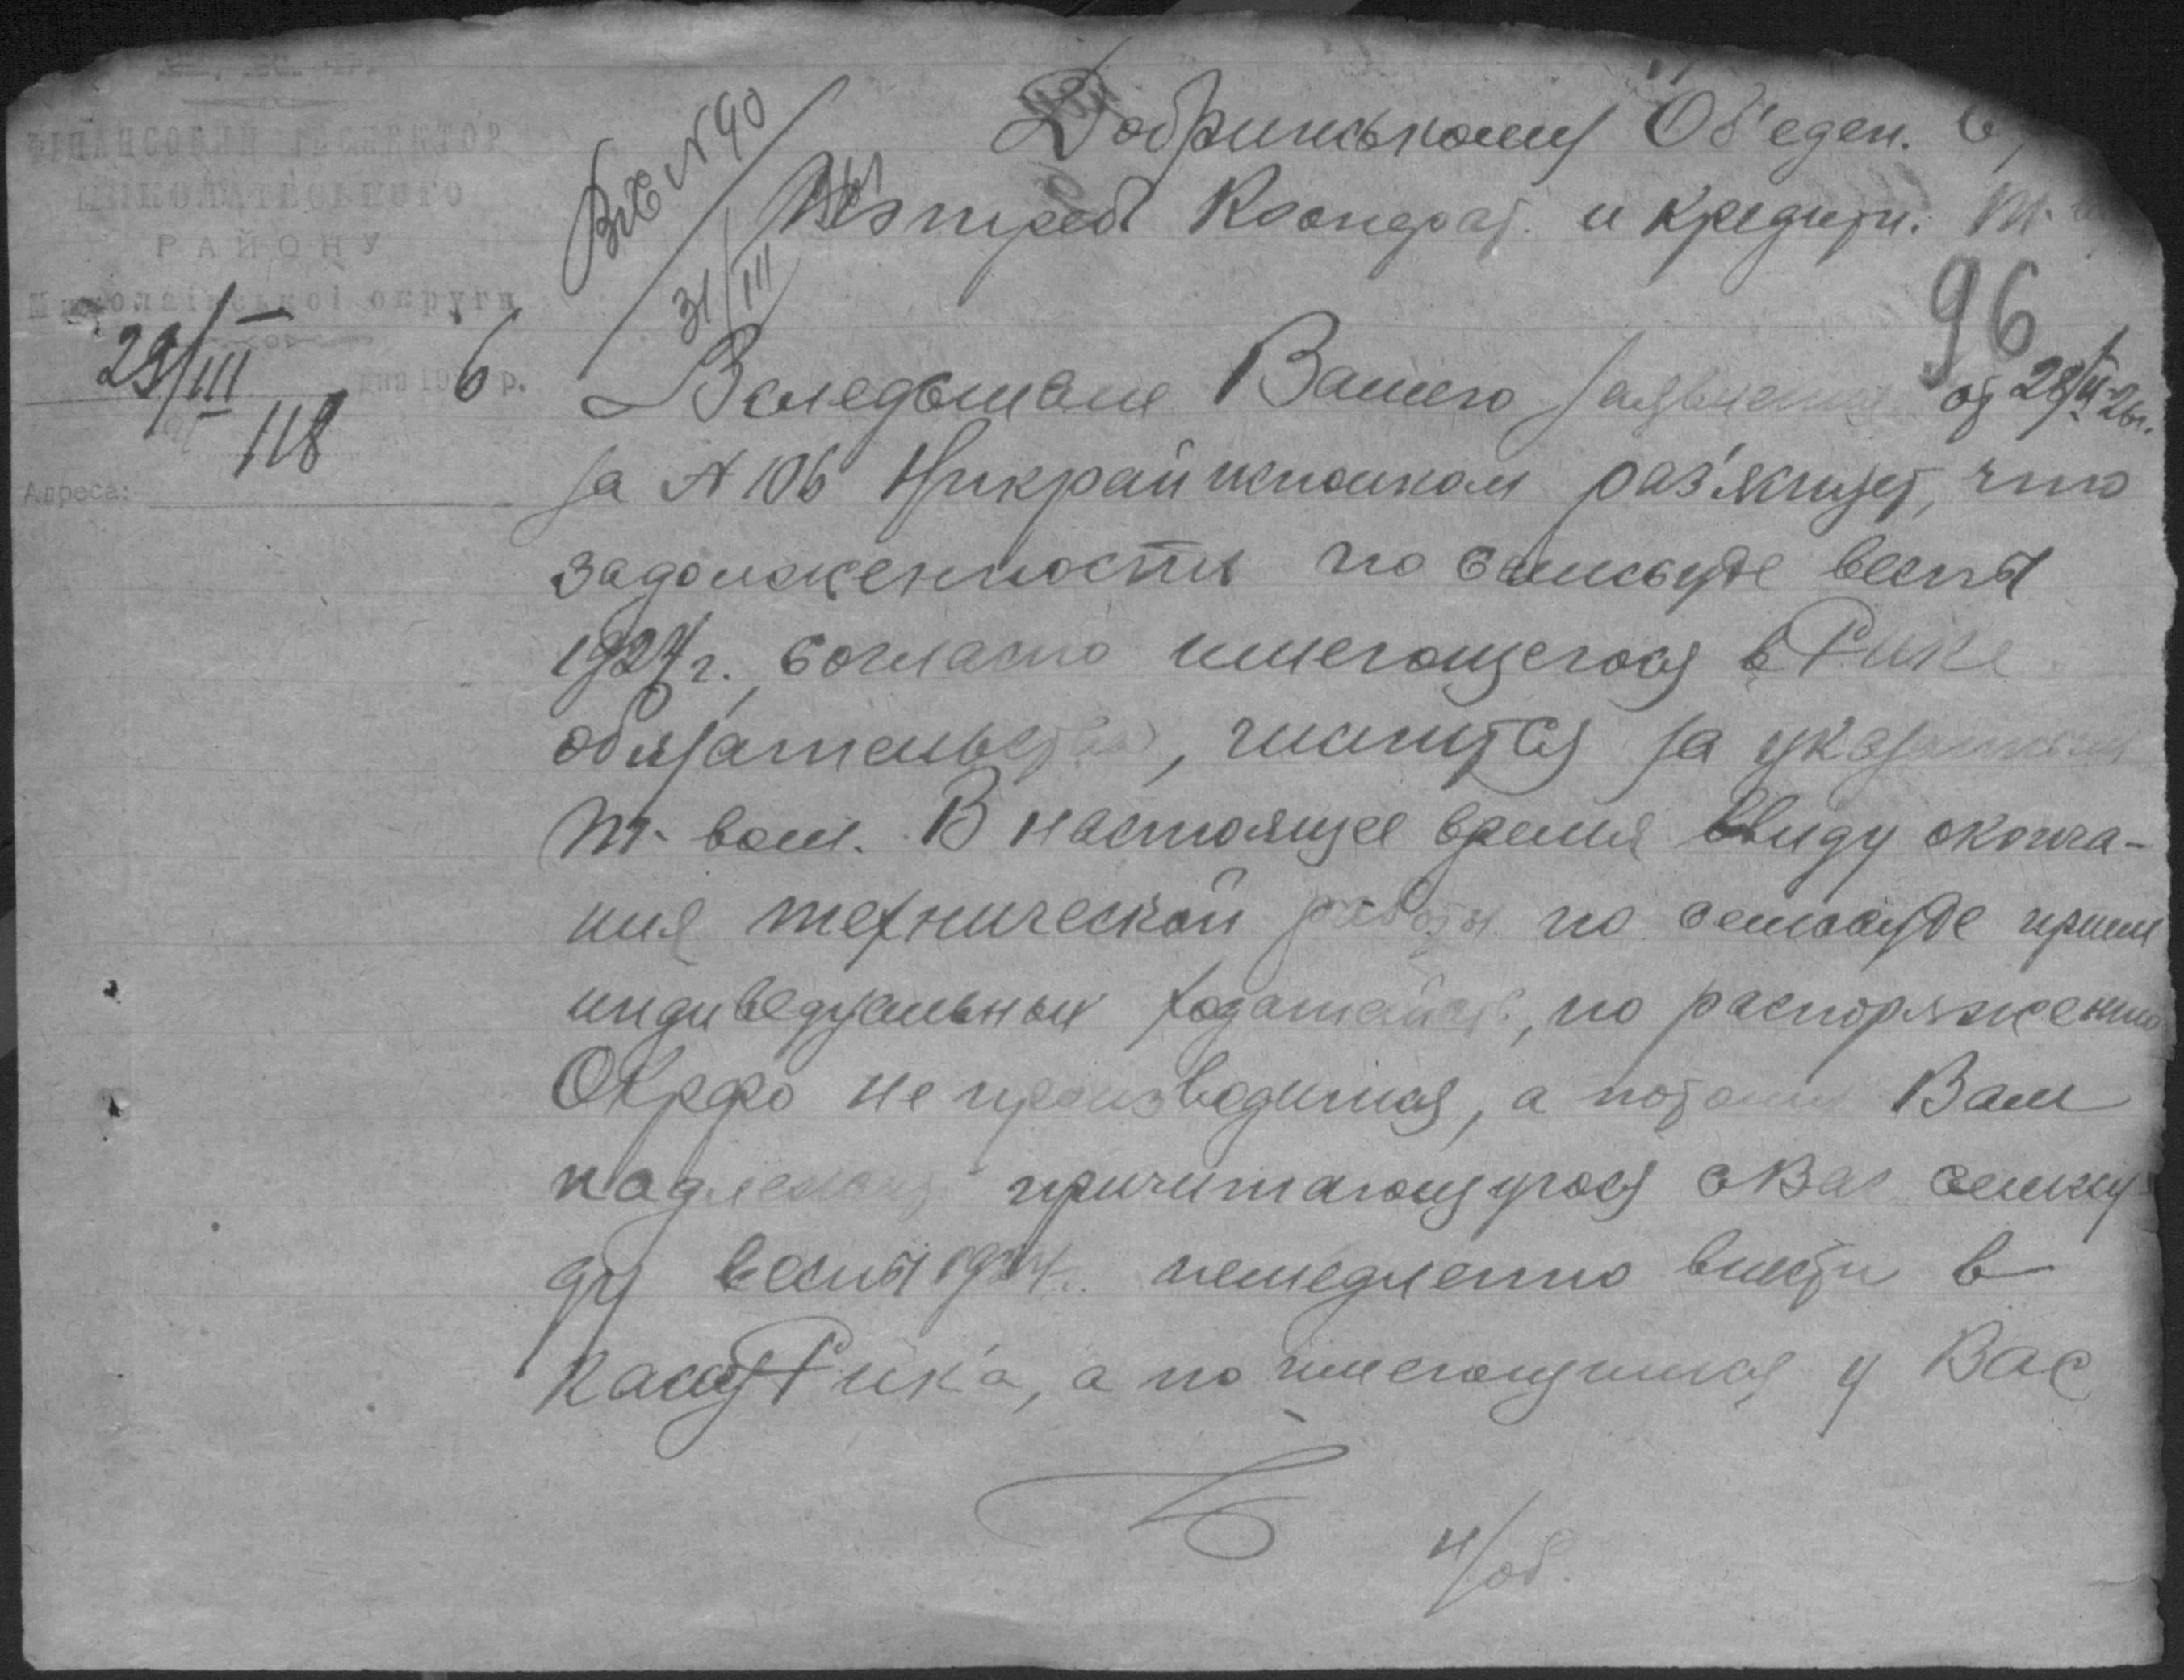 ФІНАНСОВИЙ ІНСПЕКТОР
МИКОЛАЇВСЬКОГО
РАЙОНУ
Миколаївської округи
29/III дня 192 6 р.
118
Адреса:
Вх. № 90
31/III
Добринському Об'еден.
Потреб Кооперат. и Кредитн. т-
96
Вследствие Вашего заявления от 28/III-26г.
за № 106 Никрайисполком раз'ясняет, что
задолженность по семссуде весны
1924 г., согласно имеющегося в Рике
обязательства, числится за указанным
т-вом. В настоящее время ввиду оконча-
ния технической работы по семссуде прием
индиведуальных ходатайств, по распоряжению
Окрфо не производится, а потому Вам
надлежит причитающуюся с Вас семссу-
ду весны 1924 г. немедленно внести в
кассу Рик'а, а по имеющимся у Вас
н/об.